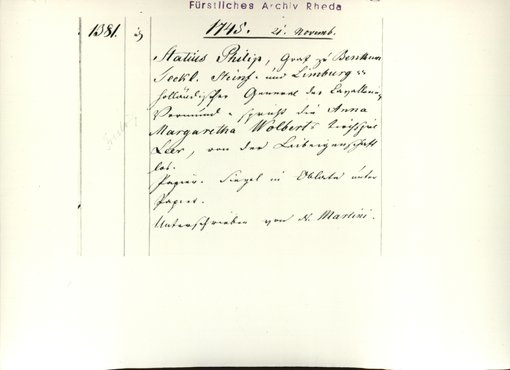 Fürstliches Archiv Rheda
1381.
1745. 21. Novemb.
Statius Philip, Graf zu Benthem
Teckl. Steinf. und Limburg =
Holländischer General der Cavallerie,
Vormund - spricht die Anna
Margaretha Wolberts Kirchspiel
Leer, von der Leibeigenschaft
los.
Papier. Siegel in Oblate unter
Papier.
Unterschrieben von N. Martini.